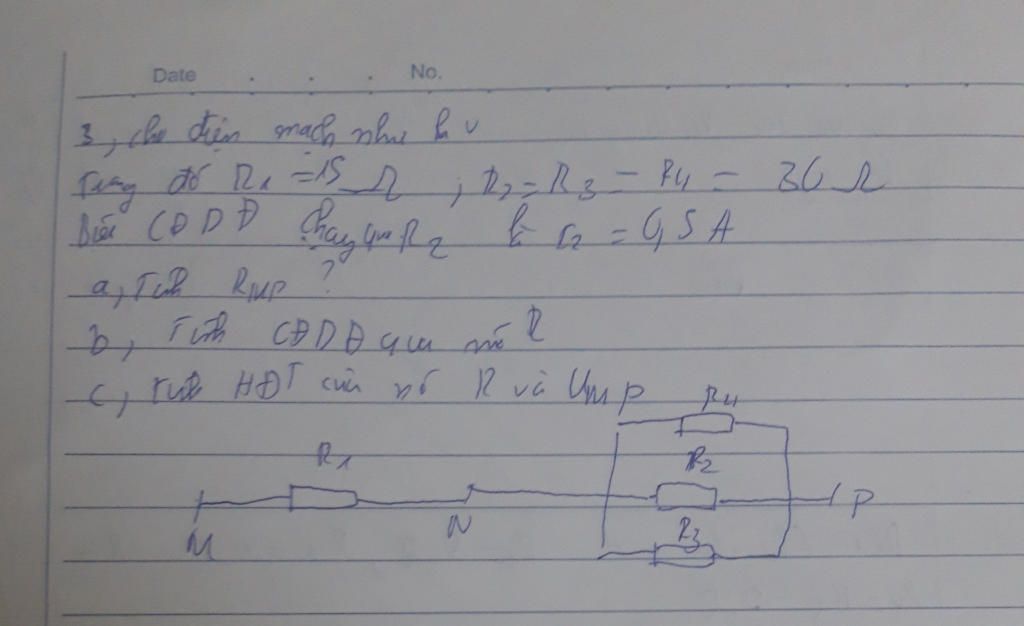 Date No.
3, cho điện mạch như h v
Trong đó R1 = 15 Ω ; R2 = R3 = R4 = 30 Ω
Biết CĐDĐ chạy qua R2 là I2 = 0,5 A
a, Tính RMP ?
b, Tính CĐDĐ qua mỗi R
c, Tính HĐT của mỗi R và UMP
R4
R1 R2
M N P
R3